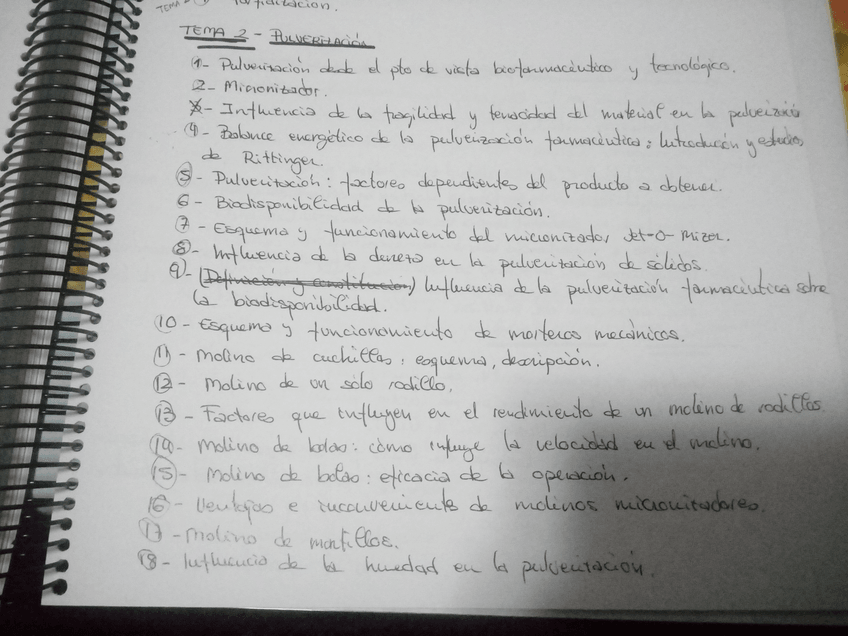 TEMA 2 - PULVERIZACIÓN
1- Pulverización desde el pto de vista biofarmacéutico y tecnológico.
2- Micronizador.
- Influencia de la fragilidad y tenacidad del material en la pulverizació
4- Balance energético de la pulverización farmacéutica: Introducción y estudios
de Rittinger.
5- Pulverización: factores dependientes del producto a obtener.
6- Biodisponibilidad de la pulverización.
7- Esquema y funcionamiento del micronizador Jet-O-Mizer.
8- Influencia de la dureza en la pulverización de sólidos.
9- (Definición y constitución) Influencia de la pulverización farmacéutica sobre
la biodisponibilidad.
10- Esquema y funcionamiento de morteros mecánicos.
11- Molino de cuchillas: esquema, descripción.
12- Molino de un sólo rodillo.
13- Factores que influyen en el rendimiento de un molino de rodillos
14- Molino de bolas: cómo influye la velocidad en el molino.
15- Molino de bolas: eficacia de la operación.
16- Ventajas e inconvenientes de molinos micronizadores.
17- Molino de martillos.
18- Influencia de la humedad en la pulverización.